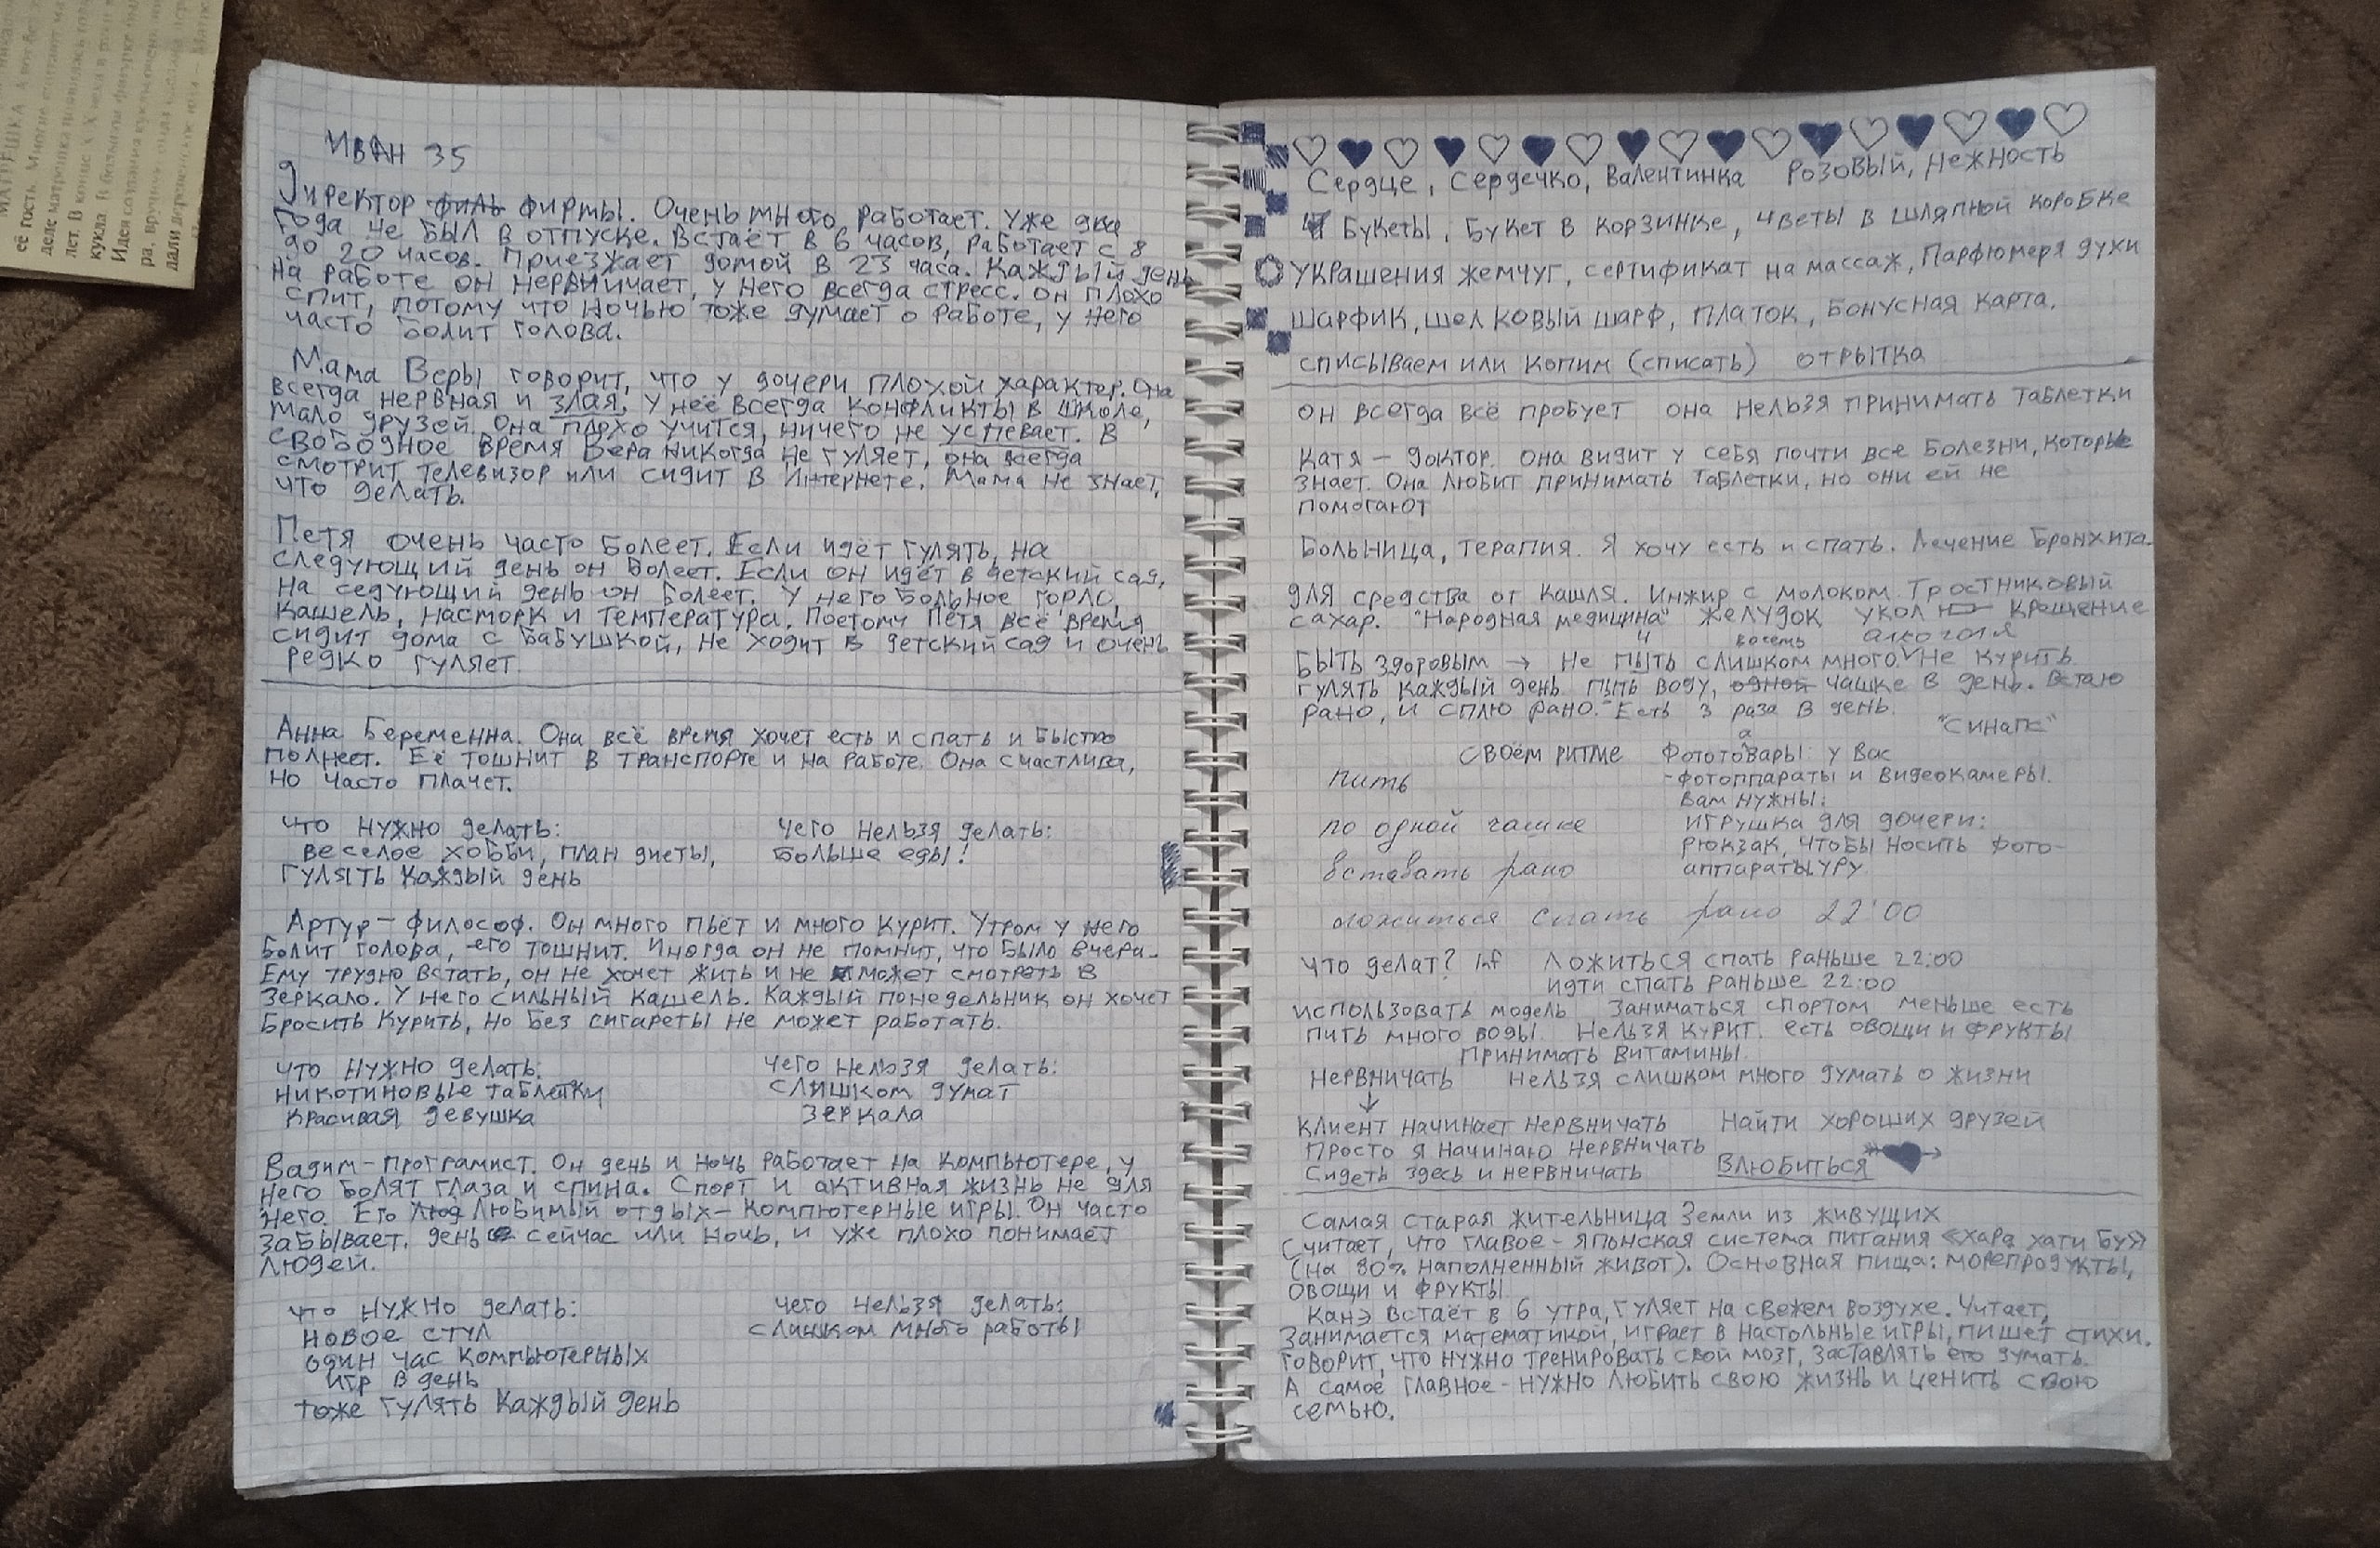 ИВАН 35
Директор филь фирмы. Очень много работает. Уже два
года не был в отпуске. Встаёт в 6 часов, работает с 8
до 20 часов. Приезжает домой в 23 часа. Каждый день
на работе он нервничает, у него всегда стресс. он плохо
спит, потому что ночью тоже думает о работе, у него
часто болит голова.
Мама Веры говорит, что у дочери плохой характер. Она
всегда нервная и злая, у неё всегда конфликты в школе,
мало друзей. Она плохо учится, ничего не успевает. В
свободное время Вера никогда не гуляет, она всегда
смотрит телевизор или сидит в Интернете. Мама не знает,
что делать.
Петя очень часто болеет. Если идёт гулять, на
следующий день он болеет. Если он идёт в детский сад,
на седующий день он болеет. У него больное горло,
кашель, насморк и температура. Поетому Петя всё время
сидит дома с бабушкой, не ходит в детский сад и очень
редко гуляет.
Анна беременна. Она всё время хочет есть и спать и быстро
полнеет. Её тошнит в транспорте и на работе. Она счастлива,
но часто плачет.
что нужно делать: чего нельзя делать:
веселое хобби, план диеты, больше еды!
гулять каждый день
Артур - философ. Он много пьёт и много курит. Утром у него
болит голова, его тошнит. Иногда он не помнит, что было вчера.
Ему трудно встать, он не хочет жить и не может смотреть в
зеркало. У него сильный кашель. Каждый понедельник он хочет
бросить курить, но без сигареты не может работать.
что нужно делать: чего нельзя делать:
никотиновые таблетки слишком думат
красивая девушка зеркала
Вадим - програмист. Он день и ночь работает на компьютере, у
него болят глаза и спина. Спорт и активная жизнь не для
него. Его люд любимый отдых - компютерные игры. Он часто
забывает, день сейчас или ночь, и уже плохо понимает
людей.
что нужно делать: чего нельзя делать:
новое стул слишком много работы
один час компьютерных
игр в день
тоже гулять каждый день
Сердце, Сердечко, Валентинка Розовый, нежность
Букеты, букет в корзинке, цветы в шляпной коробке
украшения жемчуг, сертификат на массаж, парфюмерия духи
шарфик, шелковый шарф, платок, бонусная карта.
списываем или копим (списать) отрытка
он всегда всё пробует она нельзя принимать таблетки
Катя - доктор. Она видит у себя почти все болезни, которые
знает. Она любит принимать таблетки, но они ей не
помогают
больница, терапия. Я хочу есть и спать. Лечение бронхита.
для средства от кашля. Инжир с молоком Тростниковый
сахар. "Народная медицина" желудок укол крещение
и восемь алкоголя
быть здоровым → Не пыть слишком много. Не курить.
гулять каждый день пыть воду, одной чашке в день. Встаю
рано, и сплю рано. Есть 3 раза в день.
"Синапс"
своём ритме Фототовары: у вас
а
пить - фотоппараты и видеокамеры.
вам нужны:
по одной чашке игрушка для дочери:
рюкзак, чтобы носить фото-
вставать рано аппаратыуру
ложиться спать рано 22'00
что делат? inf ложиться спать раньше 22:00
идти спать раньше 22:00
использовать модель Заниматься спортом меньше есть
пить много воды Нельзя курит. есть овощи и фрукты
принимать витамины.
нервничать нельзя слишком много думать о жизни
↓
клиент начинает нервничать Найти хороших друзей
Просто я начинаю нервничать
Сидеть здесь и нервничать влюбиться
Самая старая жительница Земли из живущих
Считает, что главое - японская система питания «хара хати бу»
(на 80% наполненный живот). Основная пища: морепродукты,
овощи и фрукты
Канэ встаёт в 6 утра, гуляет на свежем воздухе. Читает,
занимается математикой, играет в настольные игры, пишет стихи.
говорит, что нужно тренировать свой мозг, заставлять его думать.
А самое главное - нужно любить свою жизнь и ценить свою
семью.